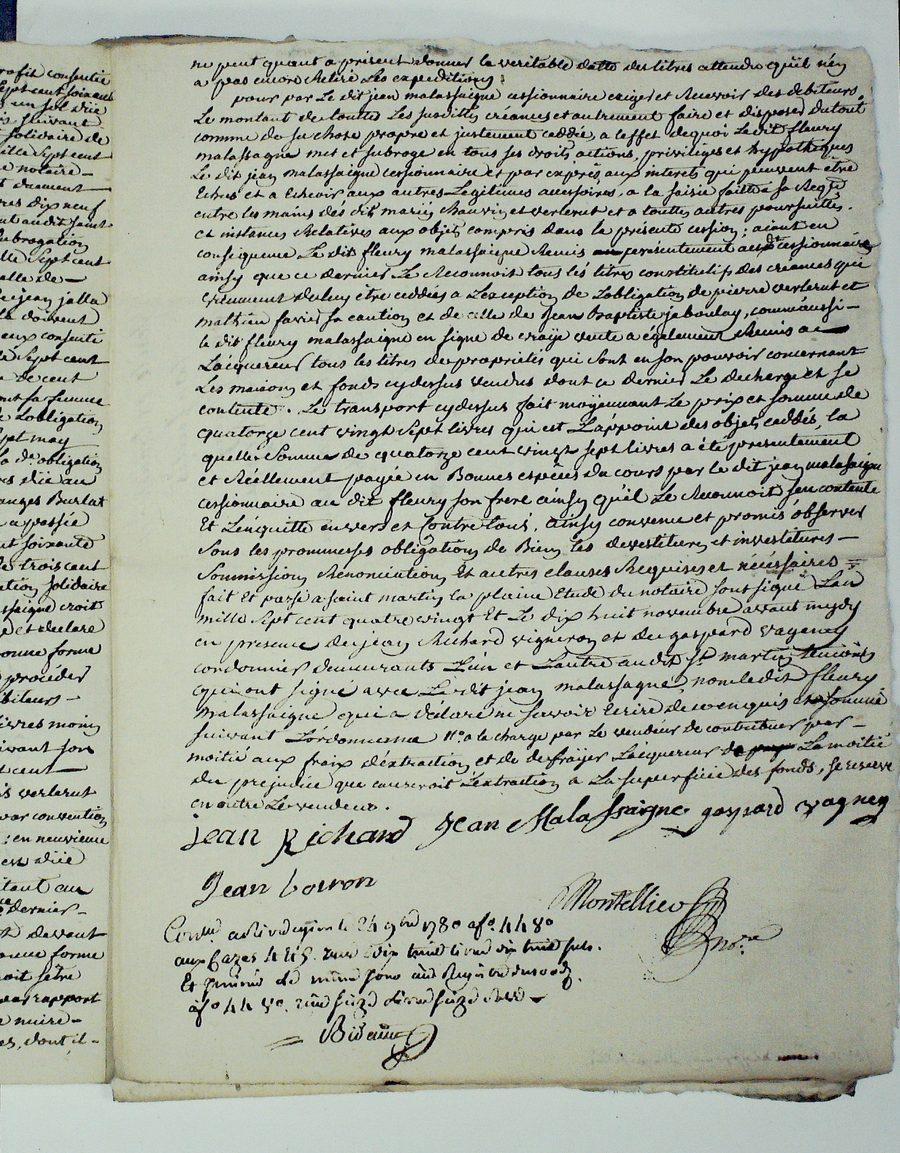 rofit consentie
Sept cent soixante
un sol dixe
is suivant
t solidaire de
ille Sept cent
e notaire
t drement
res dix neuf
ut au dit saint
ubrogation
lle Sept cent
alle de
e jean jalla
la doivent
eux consenti
lé Sept cent
e de cent
ont sa femme
e Lobligation
Sept may
la de. obligation
anges Burlat
a passée
nt soixante
e trois cent
ation Solidaire
ssaigne croit
e et declare
bonne forme
procéder
biteurs
livres moin
uivant son
t cent
is verlerut
par convention
; en neuvieme
est düe
itant au
dernier
devant
onne forme
oit fêtre
par rapport
e notaire
es, dont il
ne peut quant a present donner la veritable datte des titres attendu quil n'en
a pas encore Retiré Les expeditions;
pour par Le dit jean malassaigne cessionnaire exiger et Recevoir des debiteurs
Le montant de toutte Les susdittes créances et autrement faire et disposer du tout
comme de sa chose propre et justement ceddée, a leffet de quoi Le dit fleury
malassagne met et subroge en tous ses droits, actions, priviliges et hypotheques
Le dit jean malassaigne cessionnaire et par exprès, aux interets qui peuvent être
Echus et a Echeoir aux autres Legitimes accessoires, a la saisie faitte a sa Reqte.
entre les mains des dits mariés Chauvin et verlerut et a touttes autres poursuittes.
et instances Relatives aux objets compris dans la presente cession; aiant en
consequence Le dit fleury malassaigne Remis presentement au dt. cessionnaire
ainsy que ce dernier Le Reconnoit tous les titres constitutifs des creances qui
viennent de luy etre ceddées a L'exception de Lobligation de pierre verlerut et
mathieu favre sa caution et de celle de Jean Baptiste jaboulay, comm'aussi
le dit fleury malassaigne en signe de vraije vente a également Remis a
L'acquereur tous les titres de proprietés qui sont en son pouvoir concernant
Les maisons et fonds cy dessus vendus dont ce dernier Le decharge et se
contente. Le transport cy dessus fait moÿennant Le prix et somme de
quatorze cent vingt Sept livres qui est L'appoint des objets ceddés, la
quelle Somme de quatorze cent vingt sept livres a été presentement
et Réellement payée en Bonnes espèces du cours par le dit jean malassaigne
cessionnaire au dit fleury son frere ainsy quil Le Reconnoit s'en contente
Et L'enquitte envers et contre tous. Ainsy convenu et promis observer
Sous les prommesses obligations de Biens, les devestitures et investitures
Soumissions Renonciations Et autres clauses Requises et nécessaires
fait Et passé a saint martin la plaine Etude du notaire soussigné Lan
mille Sept cent quatre vingt Et Le dix huit novembre avant midy
en presence de jean Richard vigneron et de gaspard vagney
cordonnier demeurants L'un et L'autre au dit St. martin temoins
qui ont signé avec Le dit jean malassagne, non le dit fleury
malassaigne qui a déclaré ne savoir Ecrire de ce enquis et sommé
suivant Lordonnance Ho. a la charge par Le vendeur de contribuer par
moitié aux fraix d'extraction et de defraÿer Lacquereur La moitié
du prejudice que causeroit L'extraction a La superficie des fonds, se reserve
en outre Le vendeur.
Jean Richard Jean Malassaigne gaspard vagney
Jean voiron
Montellier
nore.
Conllé. a Rivedegier le 24 9bre 1780 afo. 44 80
aux cazes 4 & 5. dix huit livres dix huit sols.
afo. 44 vo. seize livres seize sols
Bidaud